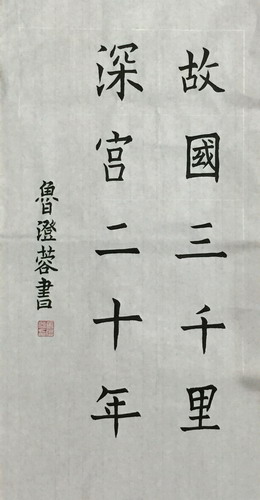 故國三千里
深宫二十年
魯澄蓉書